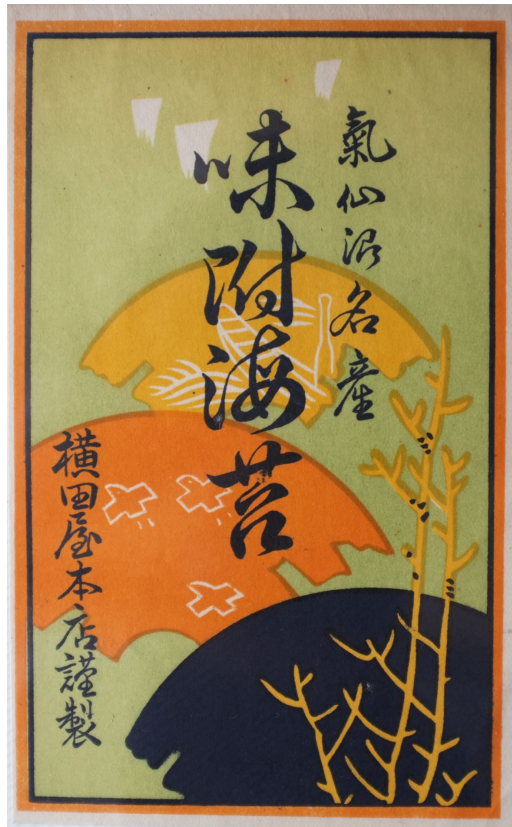 氣仙沼名産
味附海苔
横田屋本店謹製